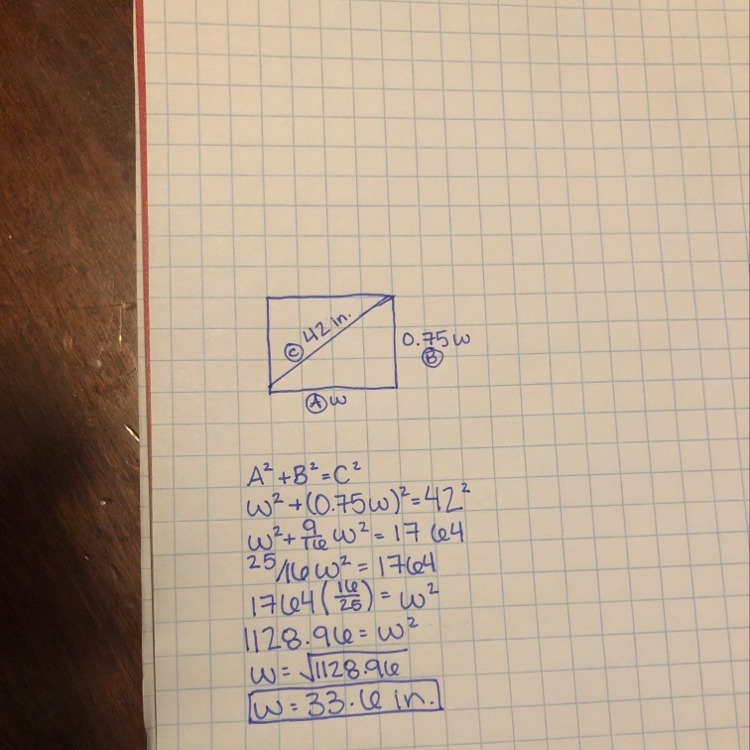 Ⓒ 42 in.
0.75w
Ⓑ
Ⓐ w
A² + B² = C²
w² + (0.75w)² = 42²
w² + 9/16 w² = 1764
25/16 w² = 1764
1764(16/25) = w²
1128.96 = w²
w = √1128.96
w = 33.6 in.